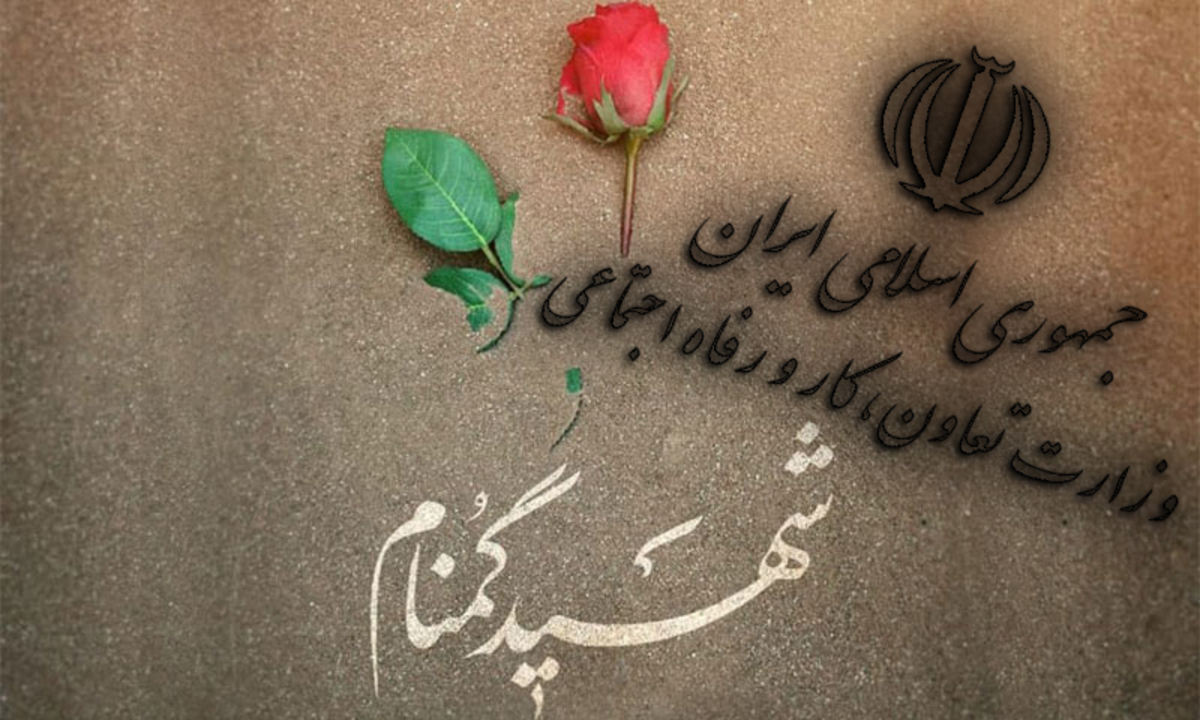 جمهوری اسلامی ایران
وزارت تعاون، کار و رفاه اجتماعی
شهید گمنام